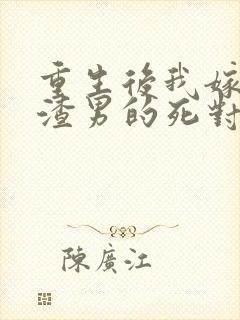 重生後我嫁
渣男的死對
陳廣江